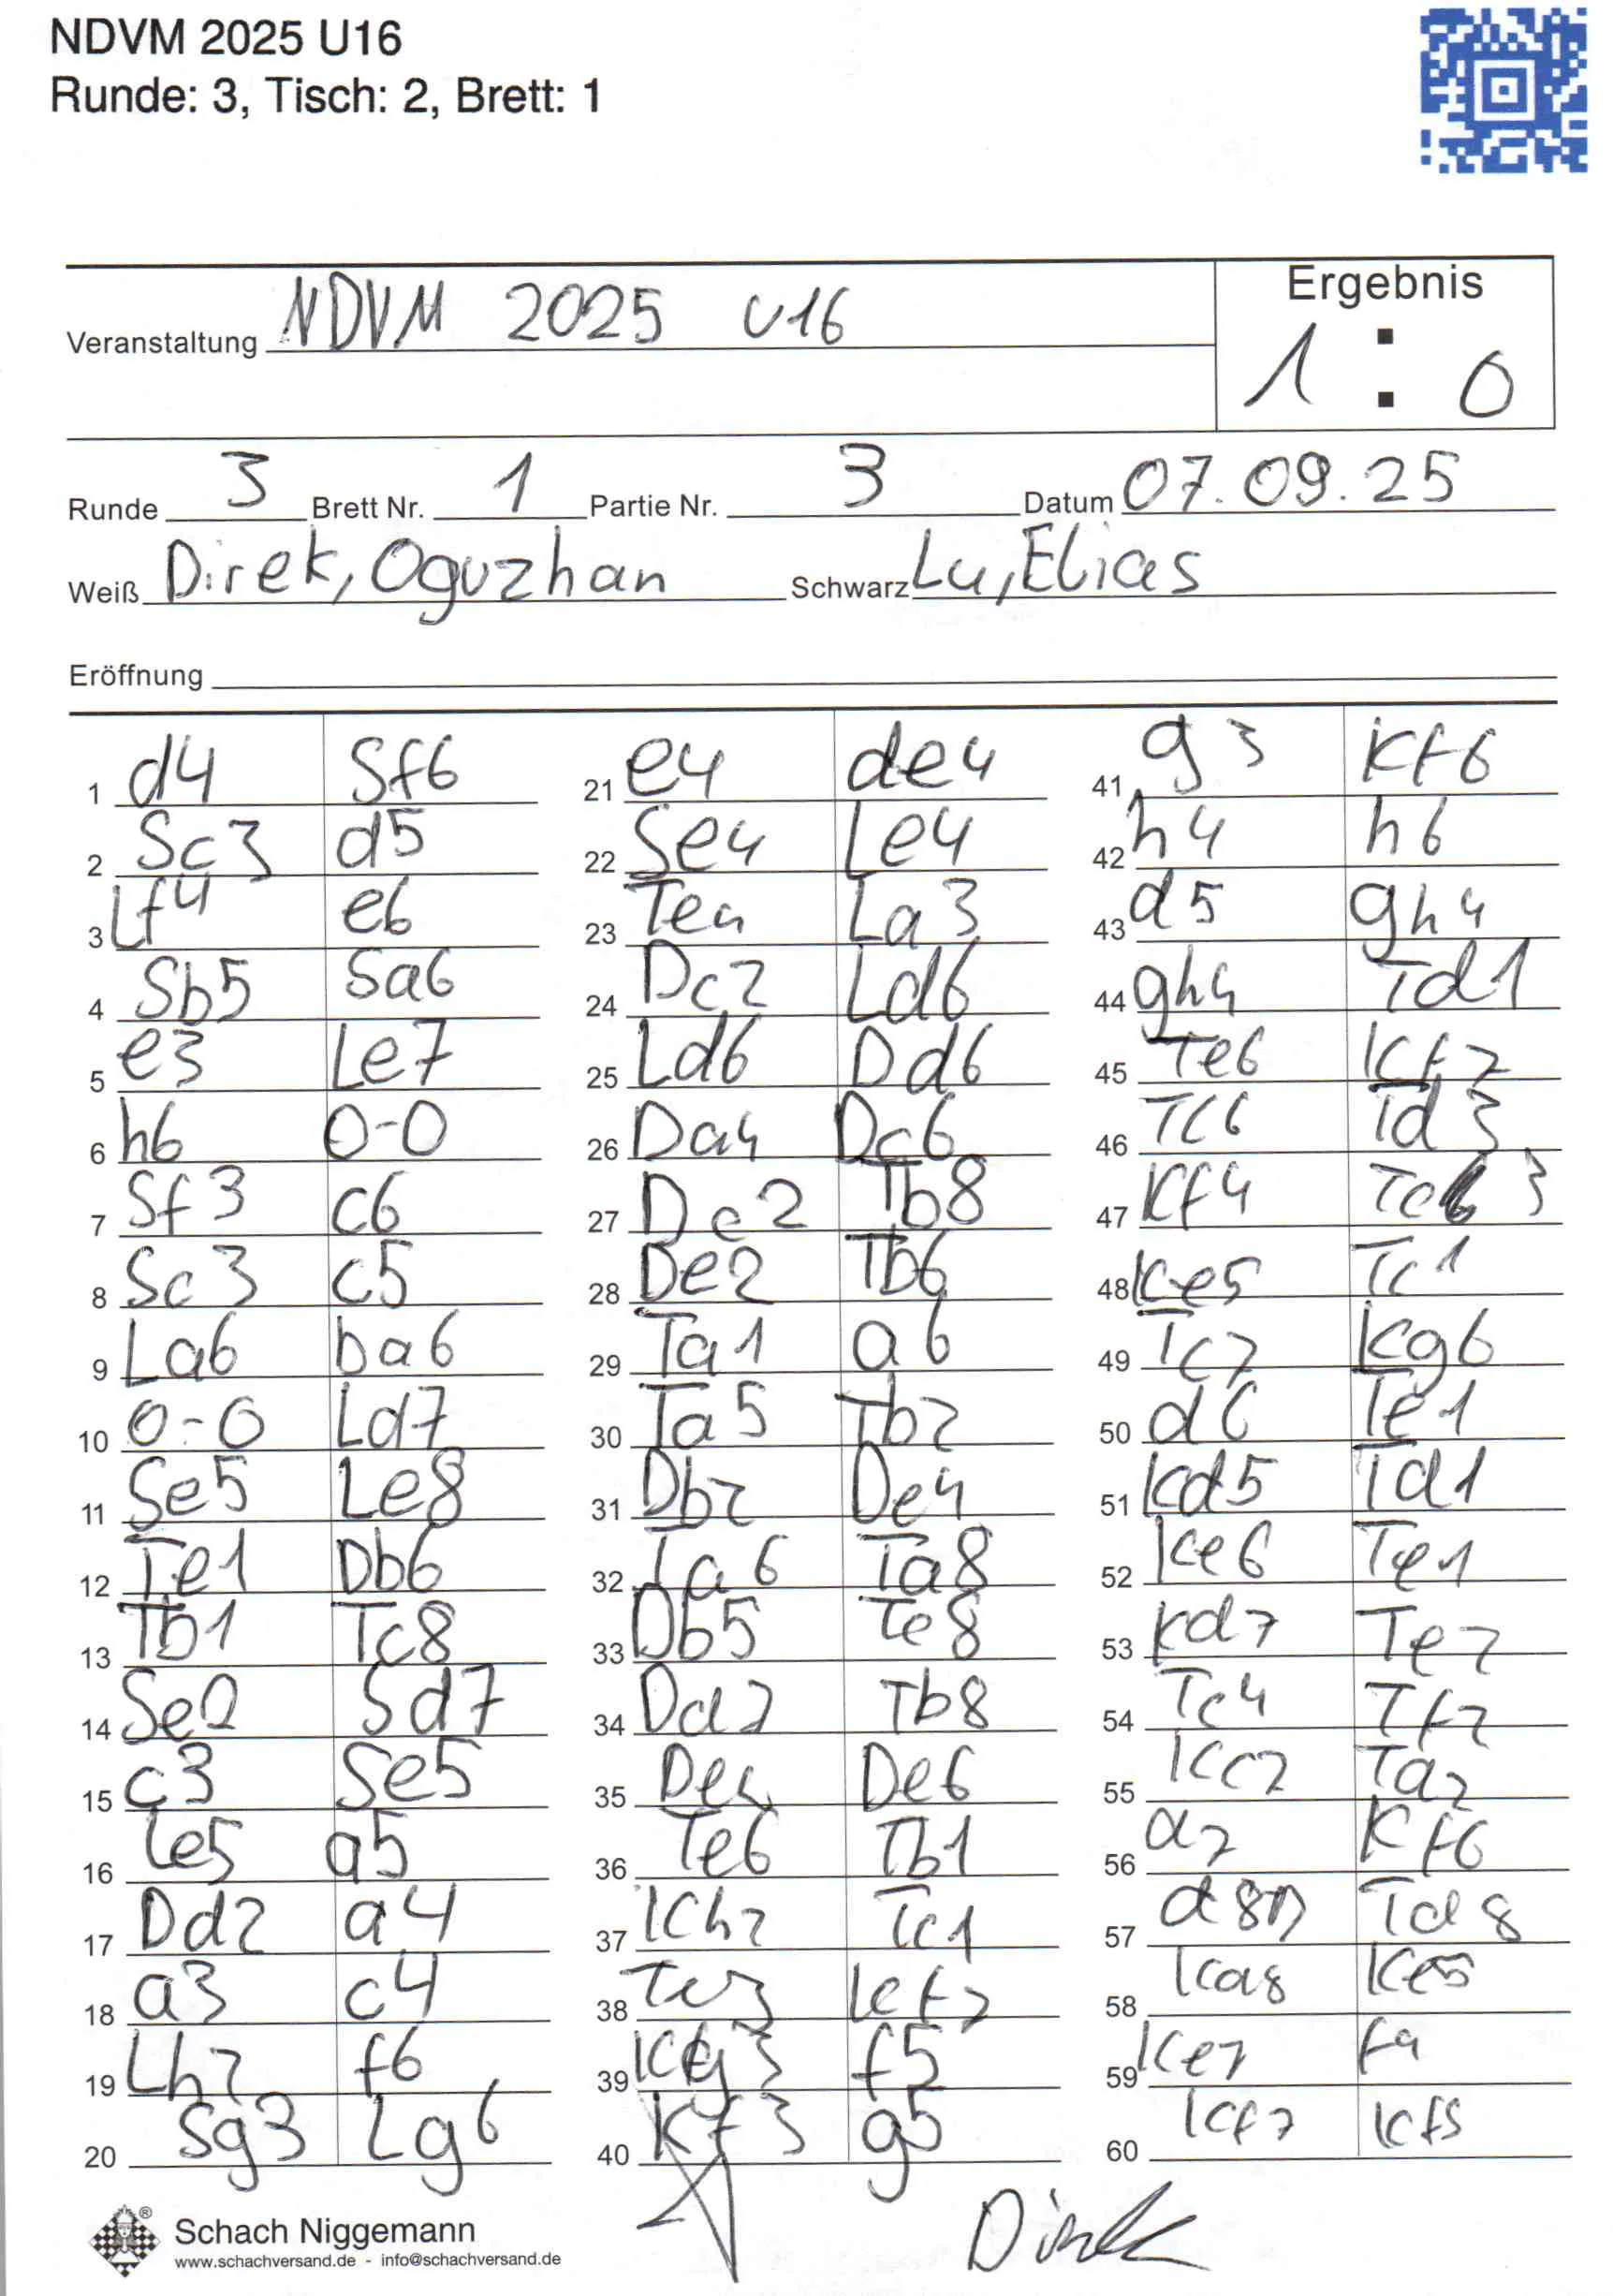 NDVM 2025 U16
Runde: 3, Tisch: 2, Brett: 1
Ergebnis
Veranstaltung NDVM 2025 U16
1 : 0
Runde 3 Brett Nr. 1 Partie Nr. 3 Datum 07.09.25
Weiß Direk, Oguzhan Schwarz Lu, Elias
Eröffnung
1 d4 Sf6
2 Sc3 d5
3 Lf4 e6
4 Sb5 Sa6
5 e3 Le7
6 h6 0-0
7 Sf3 c6
8 Sc3 c5
9 La6 ba6
10 0-0 Ld7
11 Se5 Le8
12 Te1 Db6
13 Tb1 Tc8
14 Se2 Sd7
15 c3 Se5
16 Le5 a5
17 Dd2 a4
18 a3 c4
19 Lh2 f6
20 Sg3 Lg6
21 e4 de4
22 Se4 Le4
23 Te4 La3
24 Dc2 Ld6
25 Ld6 Dd6
26 Da4 Dc6
27 Dc2 Tb8
28 De2 Tb6
29 Ta1 a6
30 Ta5 Tb7
31 Db2 De4
32 Ta6 Ta8
33 Db5 Te8
34 Dd7 Tb8
35 De4 De6
36 Te6 Tb1
37 Kh2 Tc1
38 Te3 Kf7
39 Kg3 f5
40 Kf3 g5
41 g3 Kf6
42 h4 h6
43 d5 gh4
44 gh4 Td1
45 Te6 Kf7
46 Tc6 Td3
47 Kf4 Tc3
48 Ke5 Tc1
49 Tc7 Kg6
50 d6 Te1
51 Kd5 Td1
52 Ke6 Te1
53 Kd7 Te2
54 Tc4 Tf2
55 Kc7 Ta2
56 d7 Kf6
57 d8D Td8
58 Kd8 Ke5
59 Ke7 f4
60 Kf7 Kf5
Direk
Schach Niggemann
www.schachversand.de - info@schachversand.de